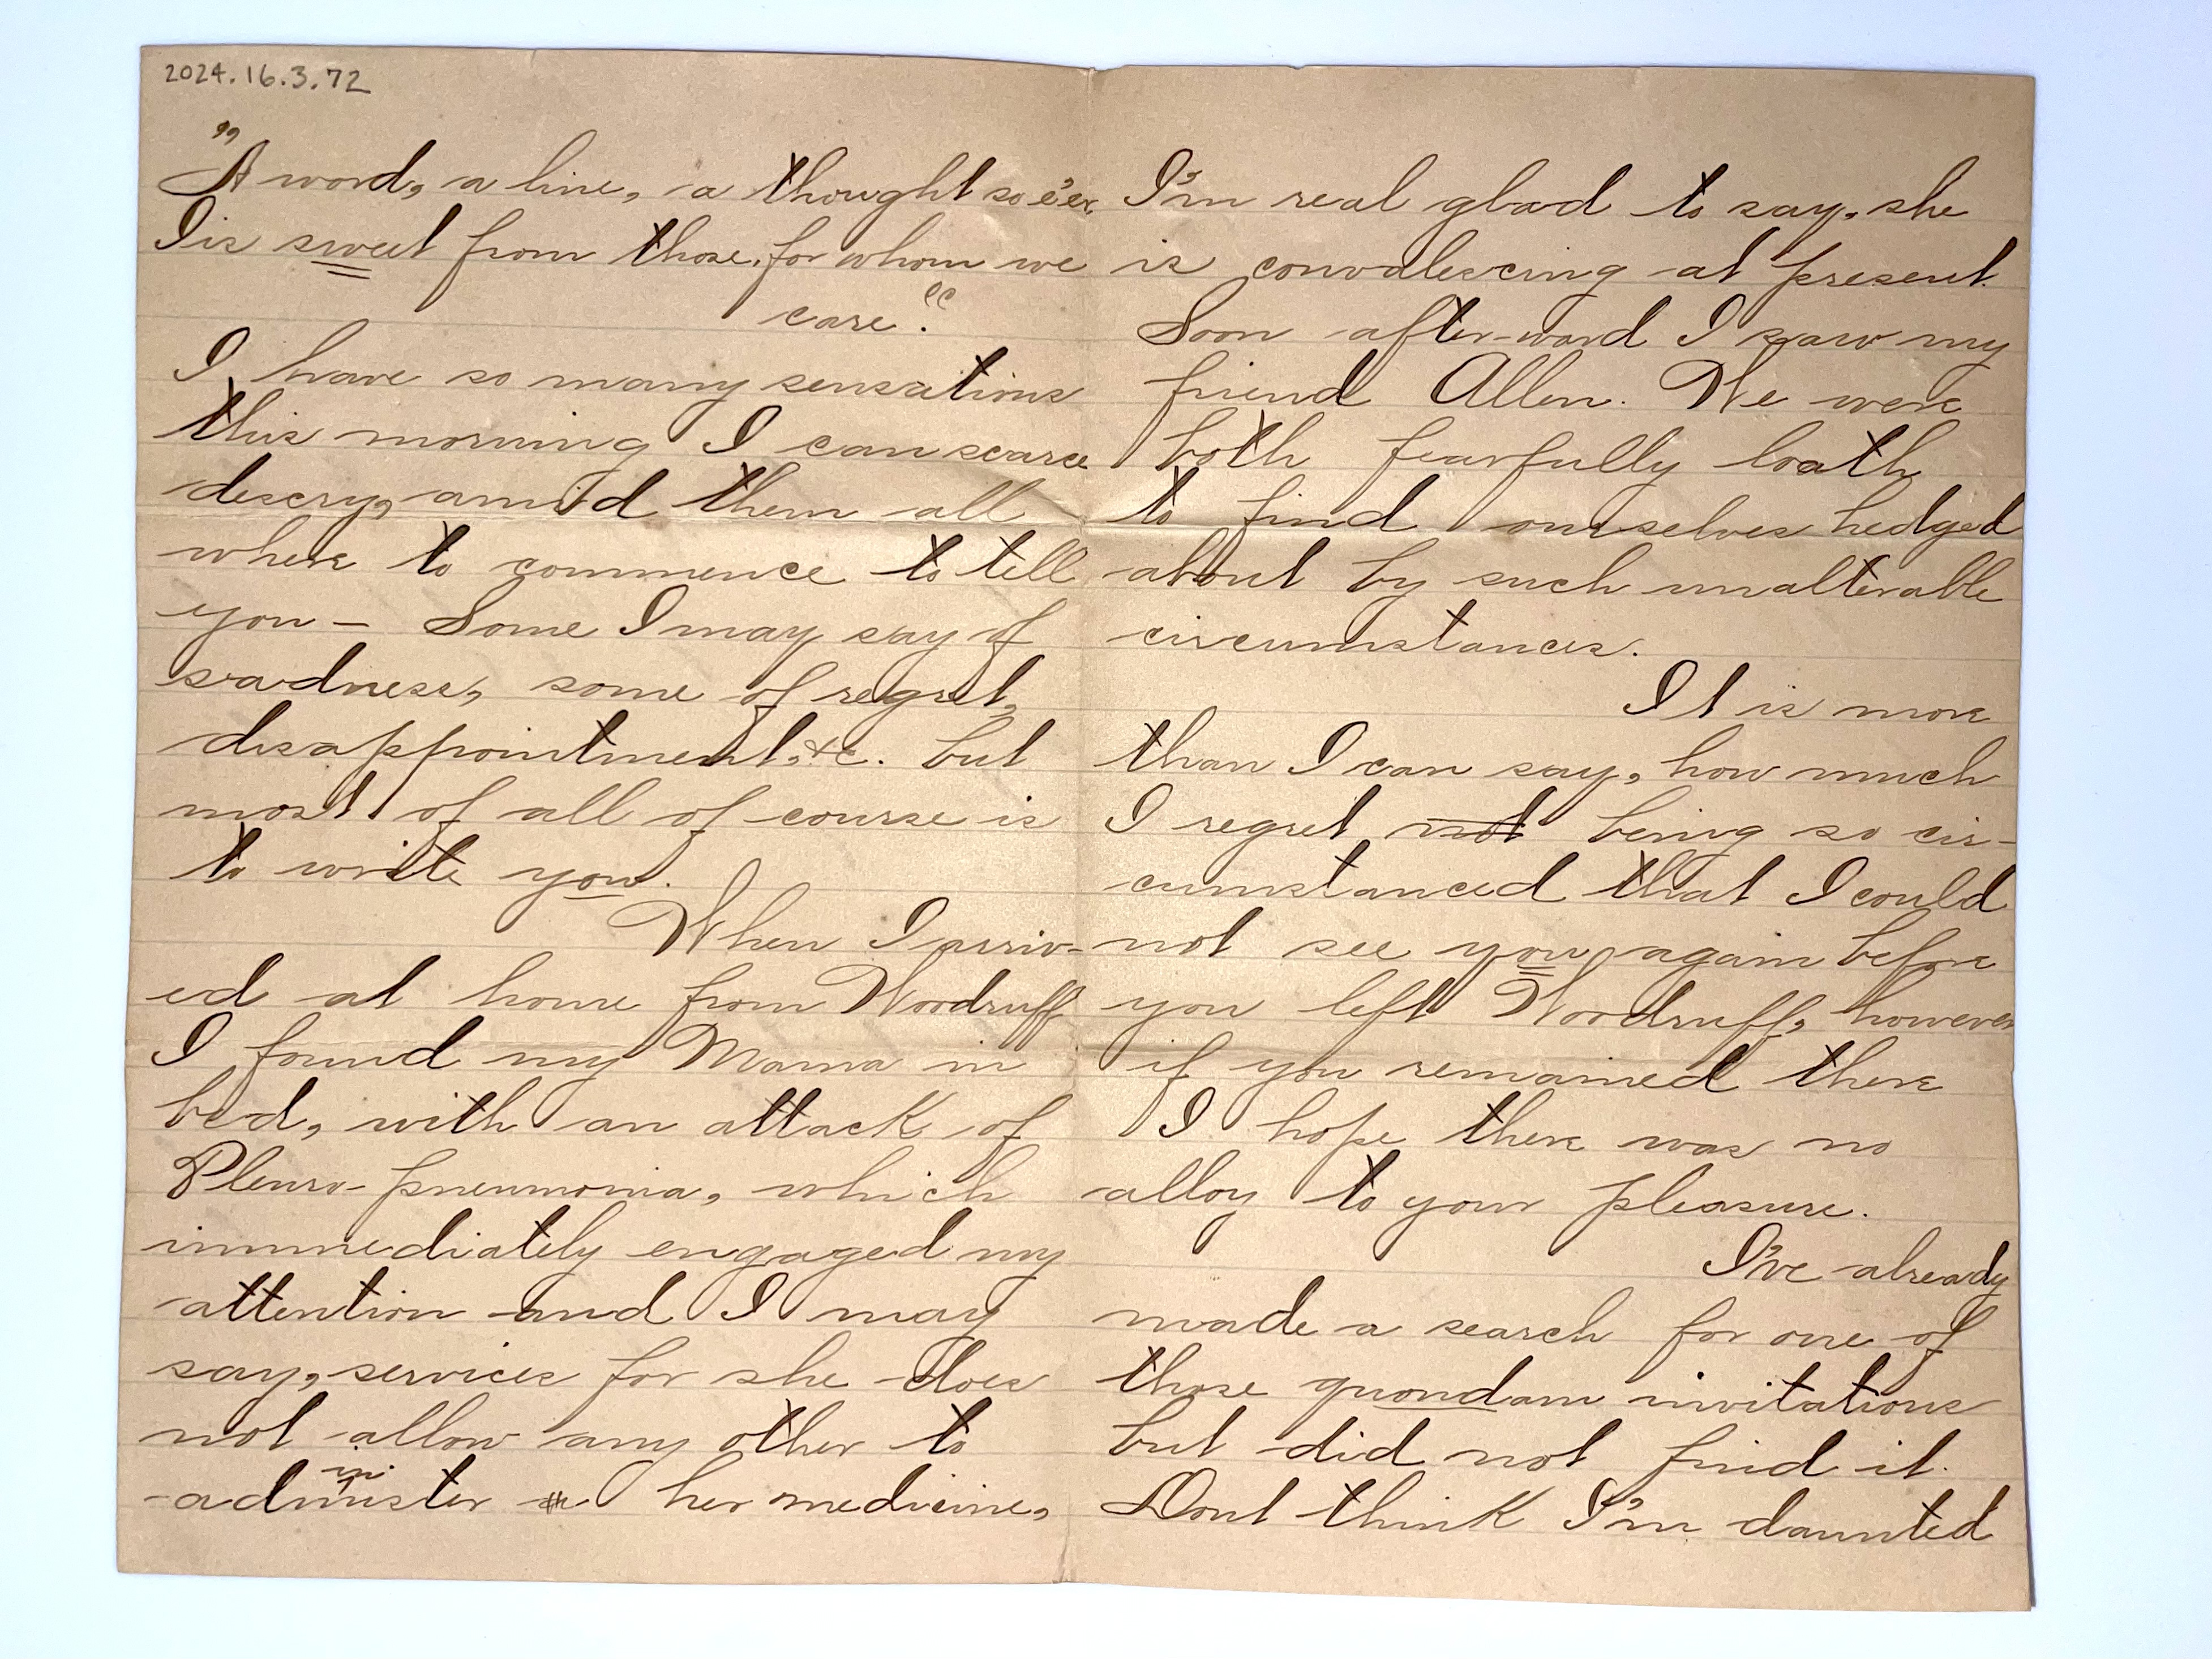 2024.16.3.72
"A word, a line, a thought so e'er
Tis sweet from those, for whom we
care."
I have so many sensations
this morning I can scarce
descry, amid them all
where to commence to tell
you — Some I may say of
sadness, some of regret,
disappointment, &c. but
most of all of course is
to write you.
When I arriv-
ed at home from Woodruff
I found my Mama in
bed, with an attack of
Pleuro-pneumonia, which
immediately engaged my
attention and I may
say, services for she does
not allow any other to
administer her medicine,
I'm real glad to say, she
is convalescing at present.
Soon after-ward I saw my
friend Allen. We were
both fearfully loath
to find ourselves hedged
about by such unalterable
circumstances.
It is more
than I can say, how much
I regret not being so cir-
cumstanced that I could
not see you again before
you left Woodruff, however
if you remained there
I hope there was no
alloy to your pleasure.
I've already
made a search for one of
those quondam invitations
but did not find it.
Dont think I'm daunted